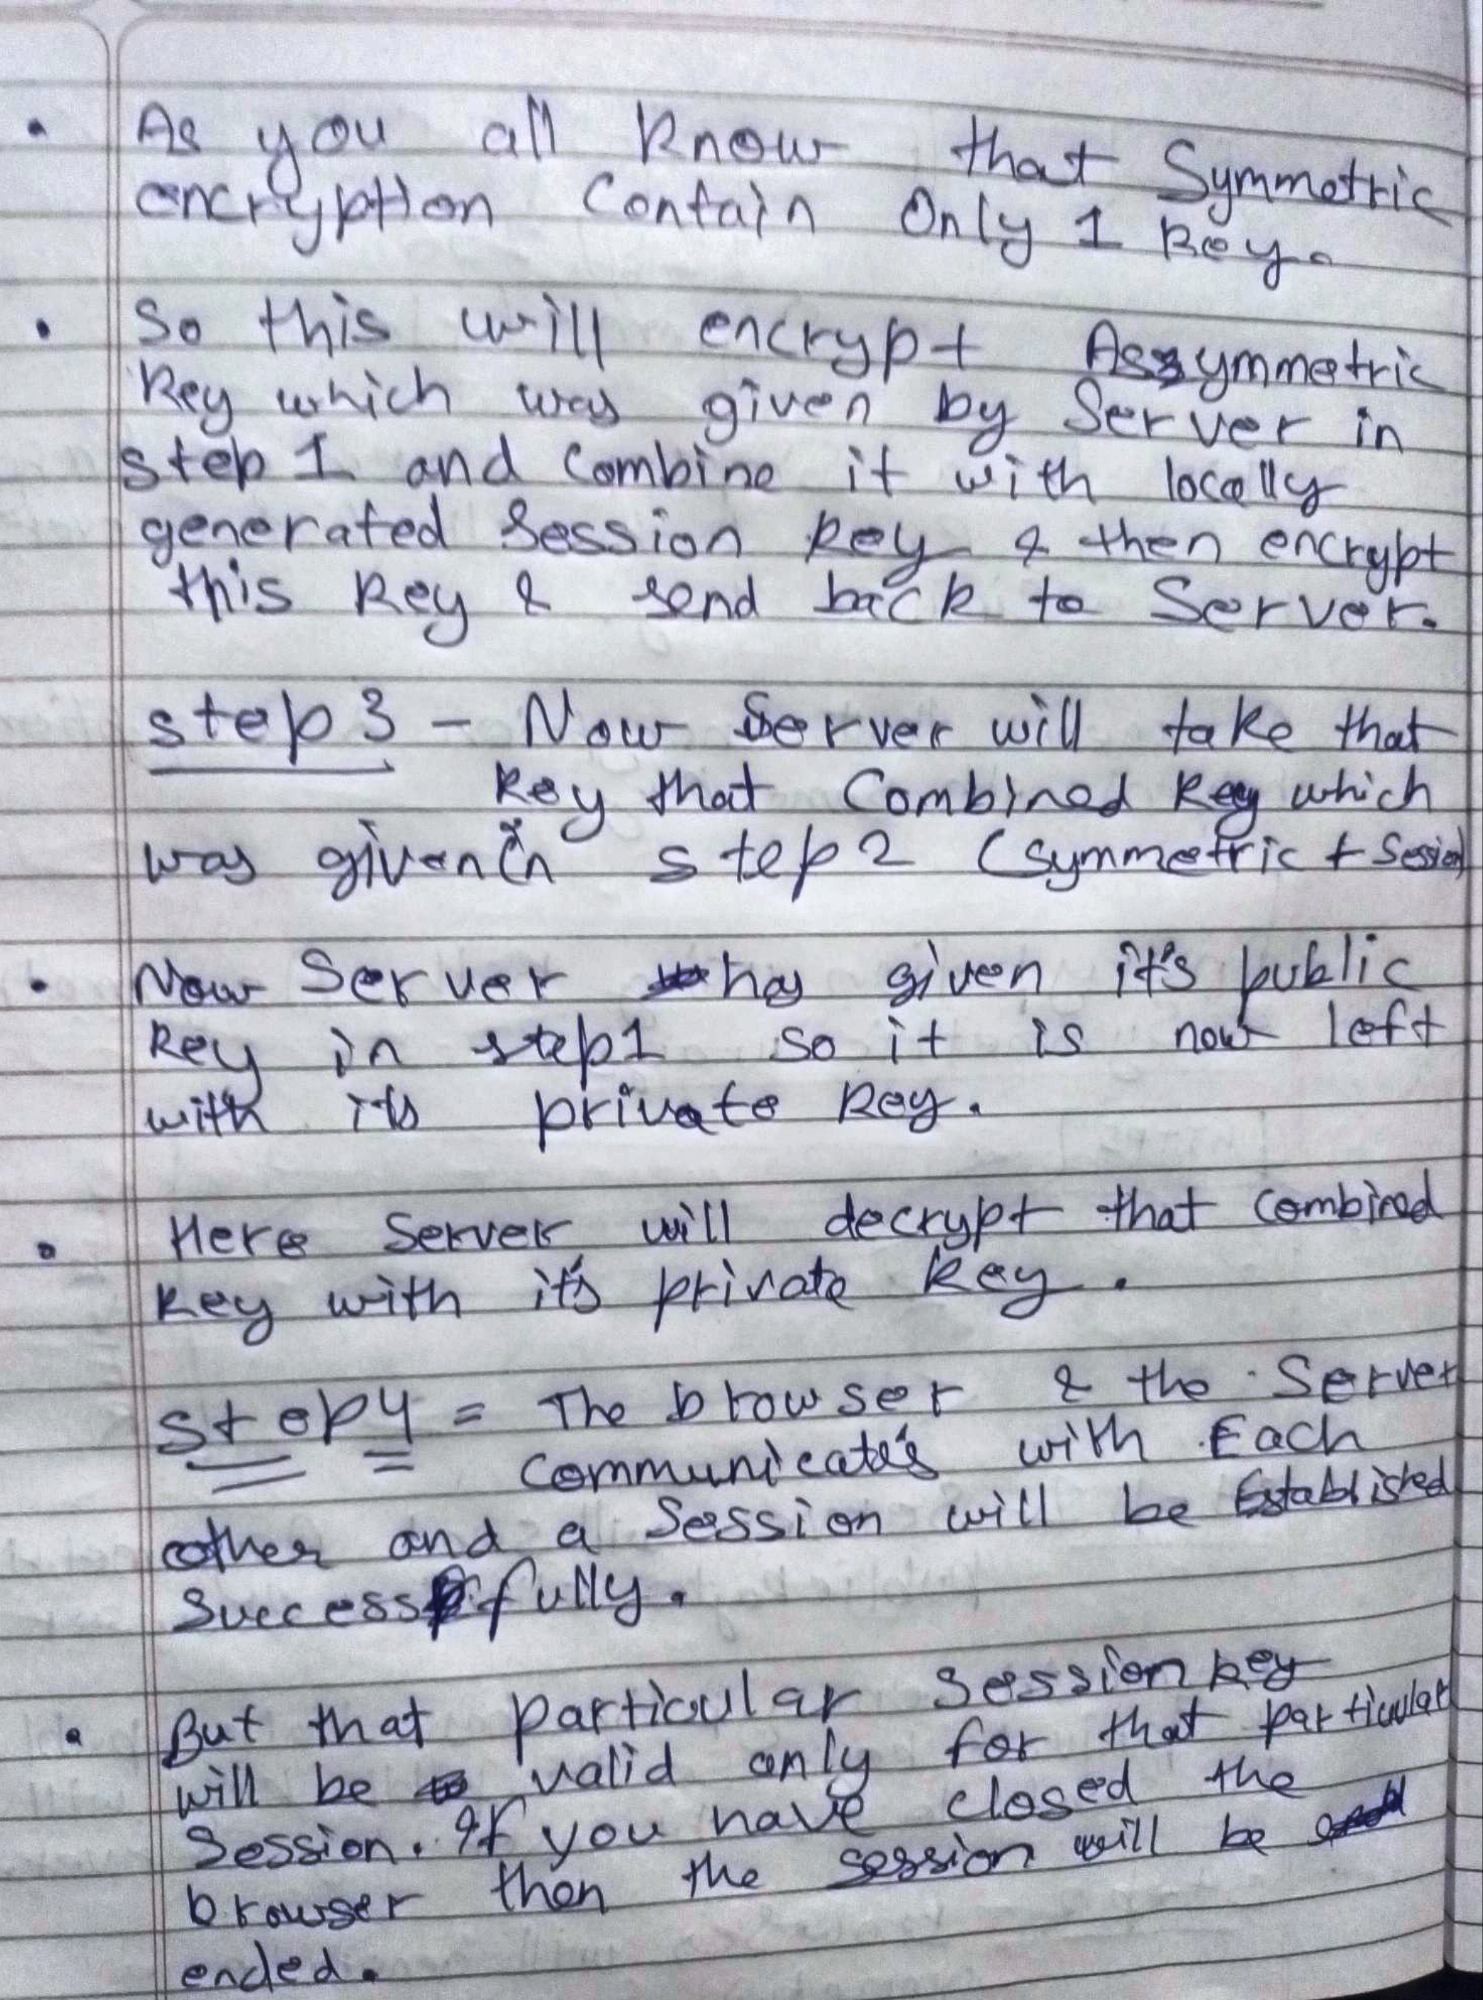 • As you all know that Symmetric
encryption Contain Only 1 key.
• So this will encrypt Assymmetric
key which was given by Server in
step 1 and Combine it with locally
generated Session key & then encrypt
this key & send back to Server.
step 3 - Now Server will take that
key that Combined key which
was given in step 2 (Symmetric + Session)
• Now Server has given it's public
key in step 1 so it is now left
with its private key.
• Here Server will decrypt that combined
key with it's private key.
step 4 = The browser & the Server
Communicate's with Each
other and a Session will be Established
Successfully.
• But that particular Session key
will be valid only for that particular
Session. If you have closed the
browser then the session will be
ended.